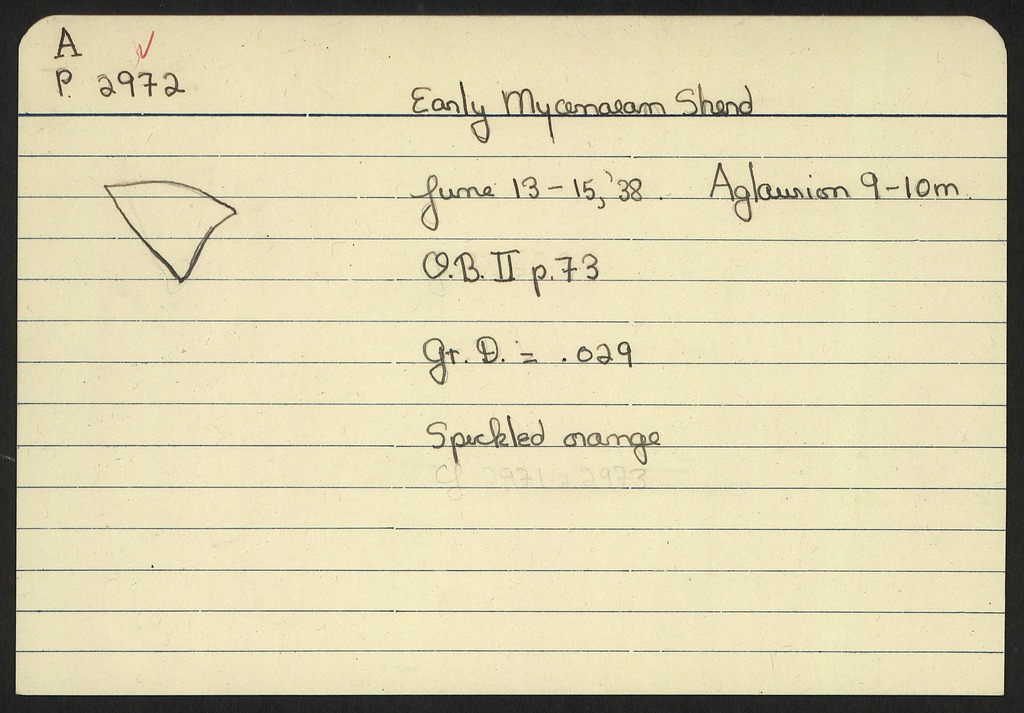 A
P. 2972
Early Mycenaean Sherd
June 13-15, '38. Aglaurion 9-10m.
O.B. II p.73
Gr. D. = .029
Speckled orange
cf 2971, 2973